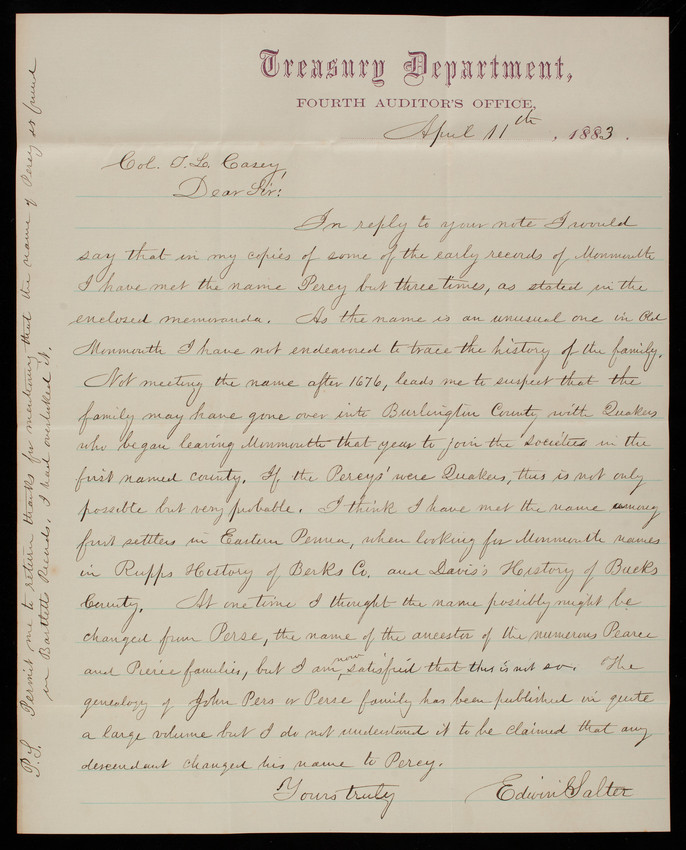 Treasury Department,
FOURTH AUDITOR'S OFFICE,
April 11th, 1883.
Col. T. L. Casey,
Dear Sir:
In reply to your note I would
say that in my copies of some of the early records of Monmouth
I have met the name Percy but three times, as stated in the
enclosed memoranda. As the name is an unusual one in Old
Monmouth I have not endeavored to trace the history of the family.
Not meeting the name after 1676, leads me to suspect that the
family may have gone over into Burlington County with Quakers
who began leaving Monmouth that year to join the societies in the
first named county. If the Percys' were Quakers, this is not only
possible but very probable. I think I have met the name among
first settlers in Eastern Penna, when looking for Monmouth names
in Rupps History of Berks Co. and Davis's History of Bucks
County. At one time I thought the name possibly might be
changed from Perse, the name of the ancestor of the numerous Pearce
and Pierce families, but I am now satisfied that this is not so. The
genealogy of John Pers or Perse family has been published in quite
a large volume but I do not understand it to be claimed that any
descendant changed his name to Percy.
Yours truly Edwin Salter
P.S. Permit me to return thanks for mentioning that the name of Percy is found
in Bartlett Records. I had overlooked it.